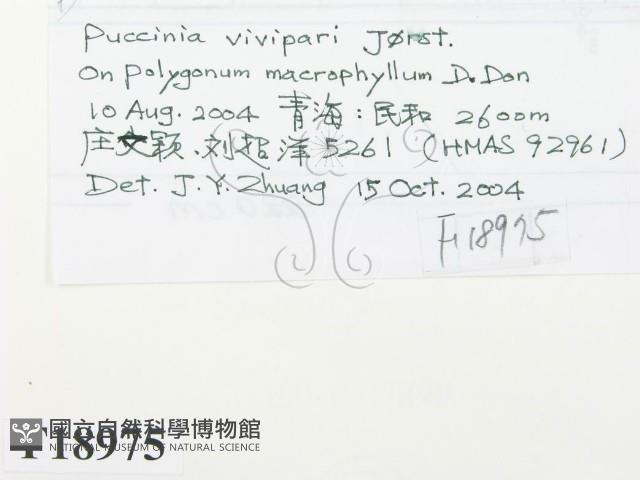 Puccinia vivipari Jørst.
On Polygonum macrophyllum D. Don
10 Aug. 2004 青海：民和 2600m
庄文颖、刘超洋 5261 (HMAS 92961)
Det. J. Y. Zhuang 15 Oct. 2004
F18975
國立自然科學博物館
NATIONAL MUSEUM OF NATURAL SCIENCE
F18975